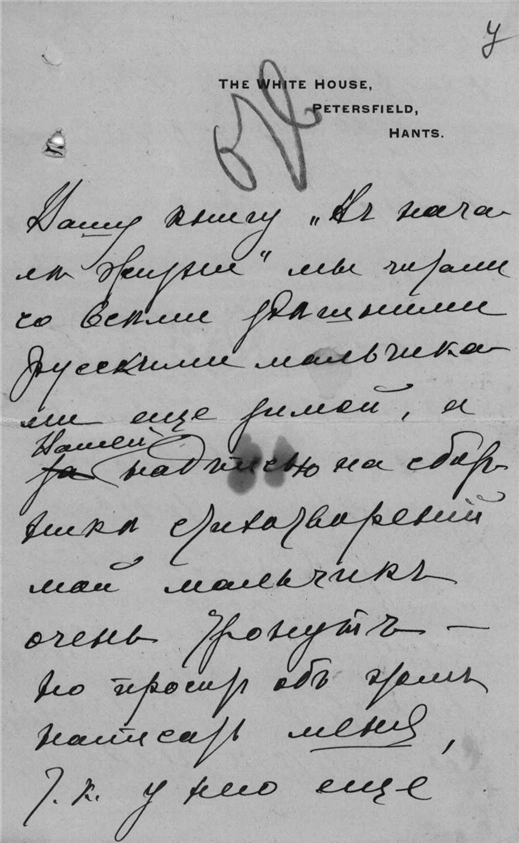 у
THE WHITE HOUSE,
PETERSFIELD,
HANTS.
Вашу книгу „Въ нача-
лѣ жизни" мы читали
со всѣми здѣшними
русскими мальчика-
ми еще зимой, а
Вашей
надписью на сбор-
никѣ стихотвореній
мой мальчикъ
очень тронутъ —
но просит объ этомъ
написать меня,
т. к. у него еще